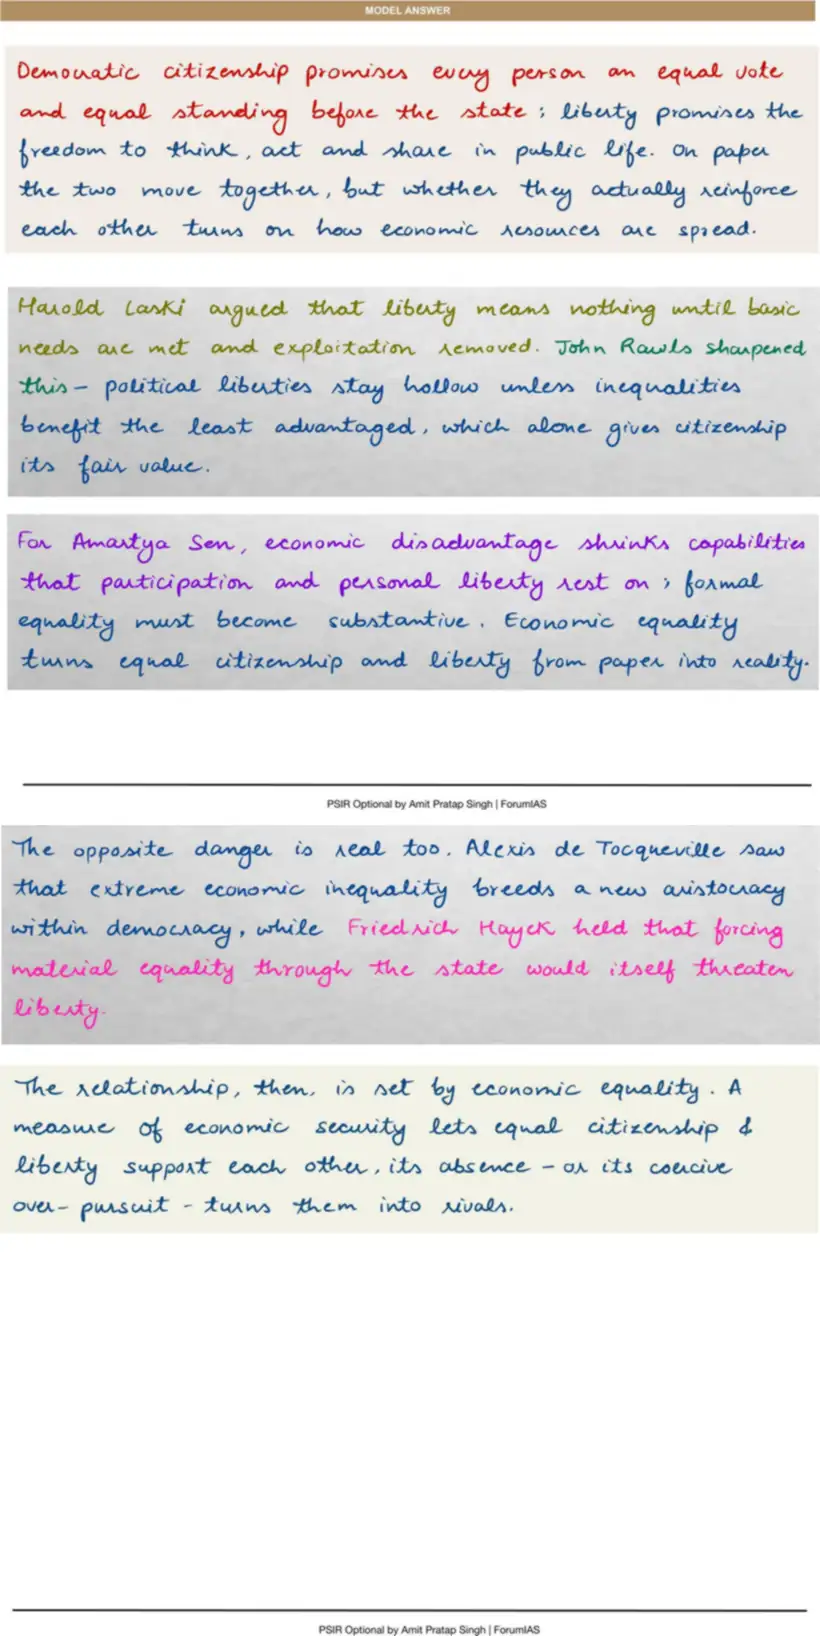 MODEL ANSWER
Democratic citizenship promises every person an equal vote
and equal standing before the state ; liberty promises the
freedom to think, act and share in public life. On paper
the two move together, but whether they actually reinforce
each other turns on how economic resources are spread.
Harold Laski argued that liberty means nothing until basic
needs are met and exploitation removed. John Rawls sharpened
this – political liberties stay hollow unless inequalities
benefit the least advantaged, which alone gives citizenship
its fair value.
For Amartya Sen, economic disadvantage shrinks capabilities
that participation and personal liberty rest on ; formal
equality must become substantive. Economic equality
turns equal citizenship and liberty from paper into reality.
PSIR Optional by Amit Pratap Singh | ForumIAS
The opposite danger is real too. Alexis de Tocqueville saw
that extreme economic inequality breeds a new aristocracy
within democracy, while Friedrich Hayek held that forcing
material equality through the state would itself threaten
liberty.
The relationship, then, is set by economic equality. A
measure of economic security lets equal citizenship &
liberty support each other, its absence – or its coercive
over-pursuit - turns them into rivals.
PSIR Optional by Amit Pratap Singh | ForumIAS